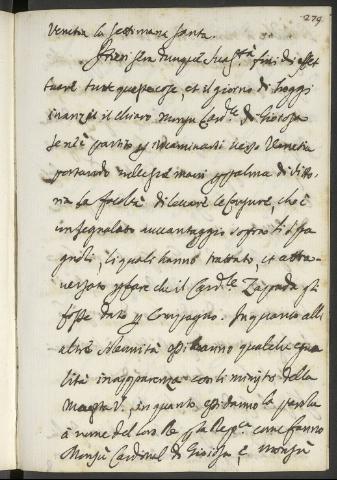 279
Venetia la settimana santa.
Hieri sera dunque Sua S.tà finì di effet
tuare tutte queste cose, et il giorno di hoggi
inanzi il chiaro Monsù Card.le di Gioiosa
se n'è partito per incaminarsi verso Venetia
portando nelle sue mani per palma di vitto
ria la facoltà di levare le censure, che è
un segnalato avvantaggio sopra li spa
gnoli, li quali hanno trattato, et attra
versato per fare che il Card.le Zapada gli
fosse dato per compagno. In quanto alle
altre solennità essi hanno qualche equa
lità in apparenza con li ministri della
Maestà V., in quanto essi danno la parola
à nome del loro Re alla Rep.ca come fanno
Monsù Cardinal di Gioiosa, e Monsù